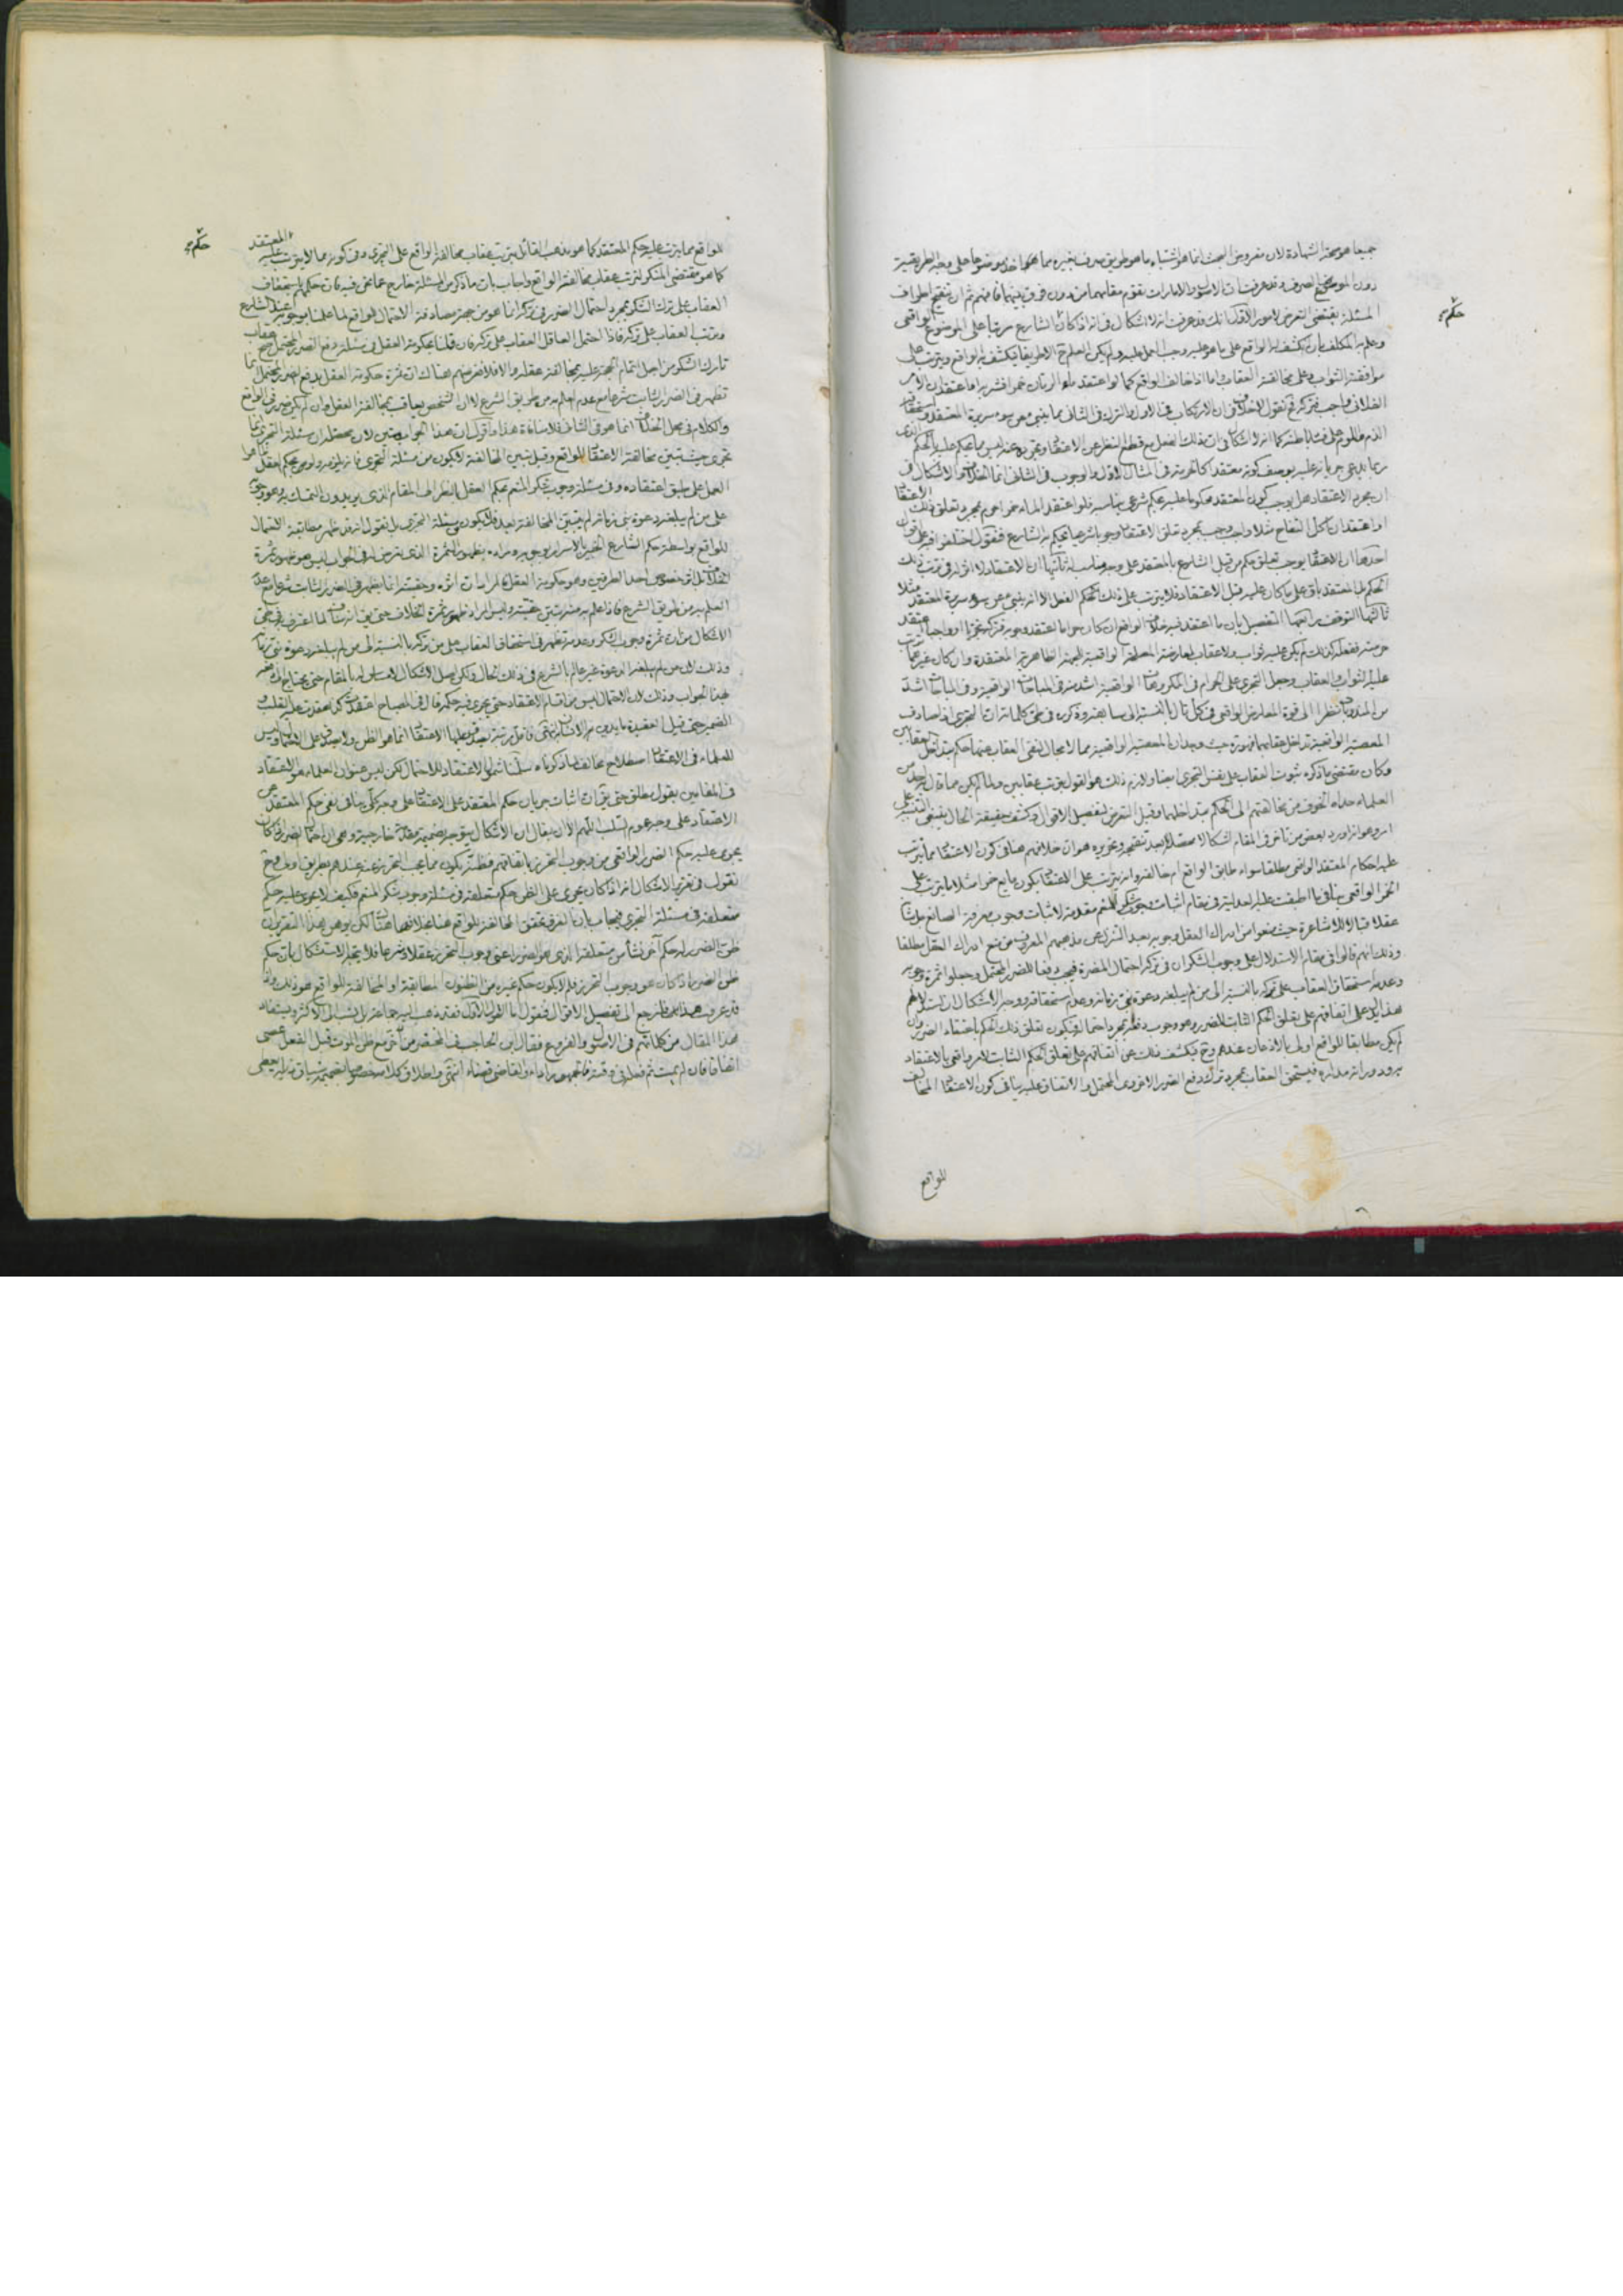 جميعا هو صحة الشهادة لان مفروض البحث انما هو اشتباه ما هو طريق صرف بغيره مما هو ماخوذ موضوعا على وجه الطريقية
دون الموضوع الصرف وقد عرفت ان الاصول والامارات تقوم مقامهما من دون فرق بينهما فافهم ثم ان تنقيح اطراف
المسئلة يقتضى التعرض لامور الاول انك قد عرفت انه لا اشكال فى انه اذا كان الشارع مرتبا على الموضوع الواقعى
وعلم به المكلف بان انكشف له الواقع على ما هو عليه وجب العمل عليه ولم يكن العلم ح الا طريقا يكشف به الواقع ويترتب على
موافقته الثواب وعلى مخالفته العقاب واما اذا خالف الواقع كما لو اعتقد ماء الرمان خمرا فشربه او اعتقد ان الامر
الفلانى واجب فتركه فنقول لا خلاف فى ان الارتكاب فى الاول والترك فى الثانى مما ينبئ عن سوء سريرة المعتقد واستحقاق
الذم واللوم على خبث باطنه كما انه لا اشكال فى ان ذلك الفعل مع قطع النظر عن الاعتقاد وتجرده عنه ليس مما يحكم عليه بالحكم الذى
ربما يدعى جريانه عليه بوصف كونه معتقدا كالحرمة فى المثال الاول والوجوب فى الثانى انما الخلاف والاشكال فى
ان مجرد الاعتقاد هل يوجب كون المعتقد محكوما عليه بحكم شرعى يناسبه فلو اعتقد الماء خمرا حرم بمجرد تعلق ذلك الاعتقاد
او اعتقد ان اكل التفاح مثلا واجب وجب بمجرد تعلق الاعتقاد وجوبا شرعيا يحكم به الشارع فنقول اختلفوا فيه على اقوال
احدها ان الاعتقاد يوجب تعلق حكم من قبل الشارع بالمعتقد على وجه يناسبه ثانيها ان الاعتقاد لا اثر له فى ترتب ذلك
الحكم بل المعتقد باق على ما كان عليه قبل الاعتقاد فلا يترتب على ذلك الحكم الفعل الا انه ينبئ عن سوء سريرة المعتقد مثلا
ثالثها التوقف رابعها التفصيل بان ما اعتقد فيه خلاف الواقع ان كان حراما اعتقد وجوبه فتركه تجريا او واجبا اعتقد
حرمته ففعله كذلك لم يكن عليه ثواب ولا عقاب لمعارضة المصلحة الواقعية للجهة الظاهرية المعتقدة وان كان غيرهما ترتب
عليه الثواب والعقاب وجعل التجرى على الحرام فى المكروهات الواقعية اشد منه فى المباحات الواقعية وفى المباحات اشد
من المندوبات نظرا الى قوة المعارض الواقعى
المعصية الواقعية تداخل عقابهما
وكان مقتضى ما ذكره ثبوت العقاب على نفس التجرى ايضا ولازم ذلك هو القول بترتب عقابين ولما لم يكن مما قال به احد من
العلماء حداه الخوف من مخالفتهم الى الحكم بتداخلهما وقبل التعرض لتفصيل الاقوال وكشف حقيقة الحال ينبغى التنبيه على
امر وهو انه اورد بعض من تاخر فى المقام اشكالا محصله بعد تنقيحه وتحريره هو ان خلافهم هنا فى كون الاعتقاد مما يترتب
عليه احكام المعتقد الواقعى مطلقا سواء طابق الواقع ام خالفه
الخمر الواقعى ينافى ما اطبقت عليه العدلية فى مقام اثبات وجوب شكر المنعم مقدمة لاثبات وجوب معرفة الصانع جل شانه
عقلا قبالا للاشاعرة حيث منعوا من ادراك العقل وجوبه بعد التنزل عن مذهبهم المعروف من منع ادراك العقل مطلقا
وذلك انهم قالوا فى مقام الاستدلال على وجوب الشكر ان فى تركه احتمال المضرة فيجب دفعا للضرر المحتمل وجعلوا ثمرة وجوبه
وعدمه استحقاق العقاب على تركه بالنسبة الى من لم يبلغه دعوة نبى زمانه وعدم استحقاقه ووجه الاشكال ان استدلالهم
هذا يدل على اتفاقهم على تعلق الحكم الثابت للضرر وهو وجوب دفعه بمجرد احتماله فيكون تعلق ذلك الحكم باعتقاد الضرر وان
لم يكن مطابقا للواقع اولى بالاذعان عندهم وح فيكشف ذلك عن اتفاقهم على تعلق الحكم الثابت لامر واقعى بالاعتقاد
فيستحق العقاب بمجرد ترك دفع الضرر الاخروى المحتمل والاتفاق عليه ينافى كون الاعتقاد المخالف
للواقع
حكم صح
للواقع مما يترتب عليه حكم المعتقد كما هو مذهب القائل بترتب عقاب مخالفة الواقع على التجرى وفى كونه مما لا يترتب عليه المعتقد
كما هو مقتضى المنكر لترتب عقاب مخالفة الواقع واجاب بان ما ذكر من المسئلة خارج عما نحن فيه فان حكمهم باستحقاق
العقاب على ترك الشكر بمجرد احتمال الضرر فى تركه انما هو من جهة مصادفة الاحتمال للواقع لما علمنا بوجوبه عند الشارع
وترتب العقاب على تركه فاذا احتمل العاقل العقاب على تركه فان قلنا بحكومة العقل فى مسئلة دفع الضرر المحتمل صح عقاب
تارك الشكر من اجل اتمام الحجة عليه بمخالفة عقله والا فلا فغرضهم هناك ان ثمرة حكومة العقل بدفع الضرر المحتمل انما
تظهر فى الضرر الثابت شرعا مع عدم العلم به من طريق الشرع لا ان الشخص يعاقب بمخالفة العقل وان لم يكن ضرر فى الواقع
والكلام فى محل الخلاف انما هو فى الثانى فلا منافاة هذا واقول ان هذا الجواب متين لان محصله ان مسئلة التجرى انما
تجرى حيث تبين مخالفة الاعتقاد للواقع وقبل تبين المخالفة لا يكون من مسئلة التجرى
العمل على طبق اعتقاده وفى مسئلة وجوب شكر المنعم يحكم العقل بالنظر الى المقام الذى يريدون التمسك به وهو دعوى
على من لم يبلغه دعوة نبى زمانه لم يتبين المخالفة بعد فلا يكون من مسئلة التجرى بل نقول انه قد ظهر مطابقة الاحتمال
للواقع بواسطة حكم الشارع الخبير بالاسرار بوجوبه ومراده بظهور الثمرة الذى تعرض له فى الجواب ليس هو ظهور ثمرة
الخلاف
العلم به من طريق الشرع
الاشكال من ان ثمرة وجوب الشكر وعدمه تظهر فى استحقاق العقاب على من تركه بالنسبة الى من لم يبلغه دعوة نبى زمانه
وذلك لان من لم يبلغه الدعوة غير عالم بالشرع فى ذلك الحال ولكن اصل الاشكال لا مساس له بالمقام حتى يحتاج الى دفعه
بهذا الجواب وذلك لان الاحتمال ليس من اقسام الاعتقاد حتى يجرى فيه حكمه قال فى المصباح اعتقدت كذا عقدت عليه القلب و
الضمير حتى قيل العقيدة ما يدين به الانسان انتهى
للعلماء فى الاعتقاد اصطلاح مخالف لما ذكرناه سلمنا شمول الاعتقاد للاحتمال لكن ليس عنوان العلماء هو الاعتقاد
فى المقامين بقول مطلق حتى يقال ان اثبات جريان حكم المعتقد على الاعتقاد على وجه كلى ينافى نفى حكم المعتقد عن
الاعتقاد على وجه عموم السلب اللهم الا ان يقال ان الاشكال يتوجه بضميمة مقدمة خارجية وهى ان احتمال الضرر اذا كان
يجرى عليه حكم الضرر الواقعى من وجوب التحرز باتفاقهم فظنه يكون مما يجب التحرز عنه عندهم بطريق اولى وح
نقول فى تقرير الاشكال انه اذا كان يجرى على الظن حكم متعلقه فى مسئلة وجوب شكر المنعم فكيف لا يجرى عليه حكم
متعلقه فى مسئلة التجرى فيجاب بان الفرق تحقق المخالفة للواقع هنا بخلافها هناك لكن يوهن هذا التقرير ان
ظن الضرر له حكم اخر نشأ من متعلقه الذى هو الضرر اعنى وجوب التحرز عنه عقلا وشرعا فلا يتجه الاستشكال بان حكم
ظن الضرر اذا كان هو وجوب التحرز فلم لا يكون حكم غيره من الظنون المطابقة او المخالفة للواقع هو ذلك واذ
قد عرفت هذا فلنرجع الى تفصيل الاقوال فنقول اما القول الاول فقد ذهب اليه جماعة بل نسب الى الاكثر ويستفاد
هذا المقال من كلماتهم فى الاصول والفروع فقال ابن الحاجب فى المختصر من اخر مع ظن الموت قبل الفعل عصى
اتفاقا فان لم يمت ثم فعله فى وقته فالجمهور اداء والقاضى قضاء انتهى واطلاق كلامه خصوصا بضميمة سياق ما يليه يعطى
حكم صح